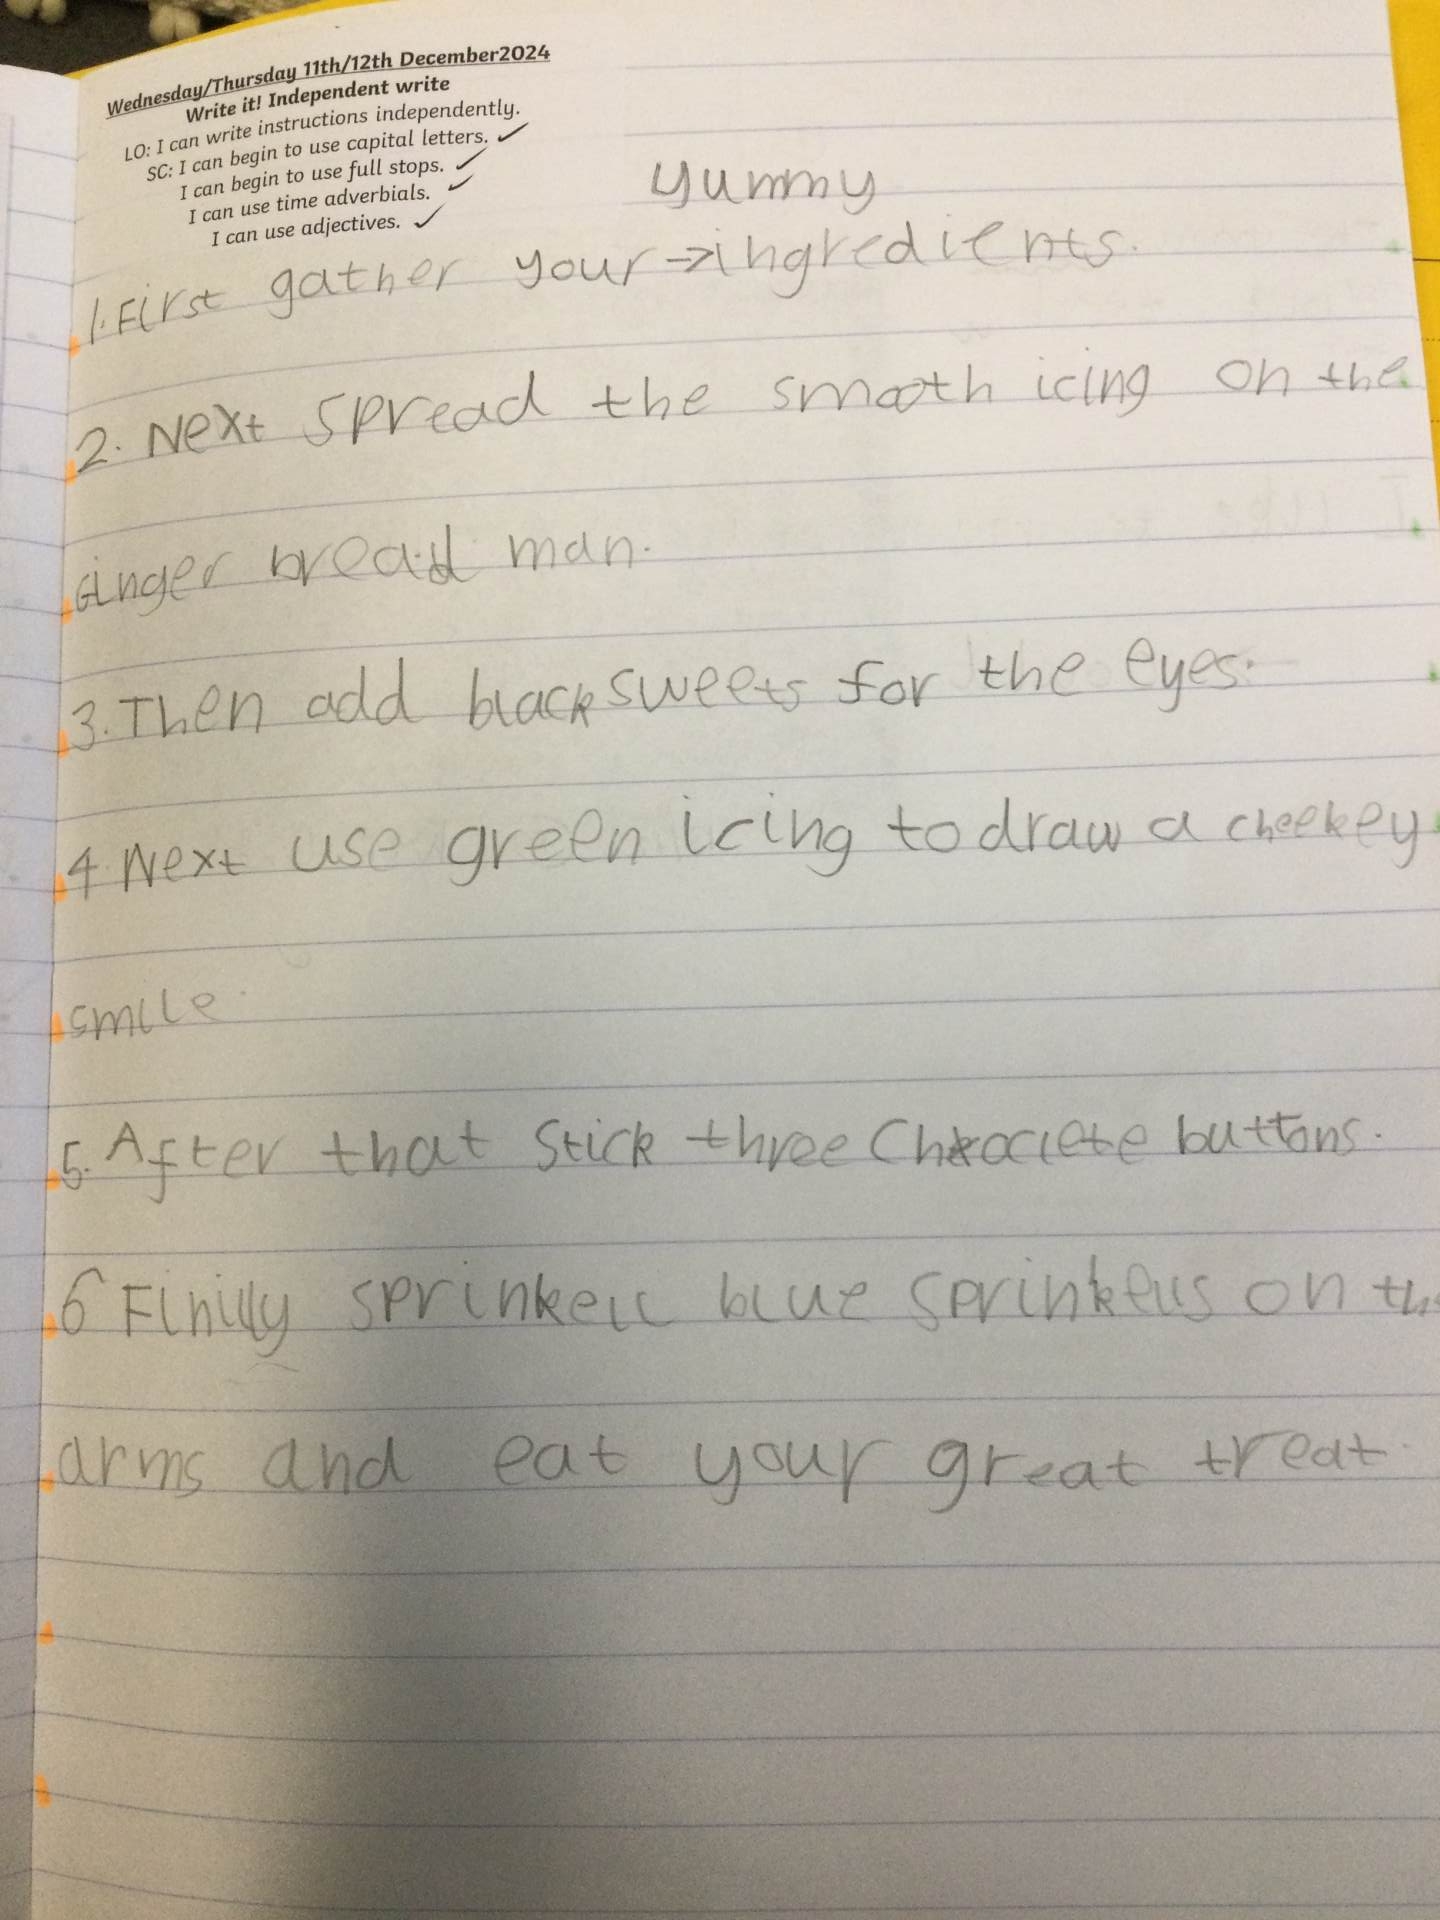 Wednesday/Thursday 11th/12th December2024
Write it! Independent write
LO: I can write instructions independently.
SC: I can begin to use capital letters. ✓
I can begin to use full stops. ✓
I can use time adverbials. ✓
I can use adjectives. ✓
yummy
1. First gather your → ingredients.
2. Next spread the smooth icing on the
Ginger bread man.
3. Then add black sweets for the eyes.
4 Next use green icing to draw a cheekey
smile.
5. After that stick three buttons.
6 Finilly blue on
arms and eat your great treat.